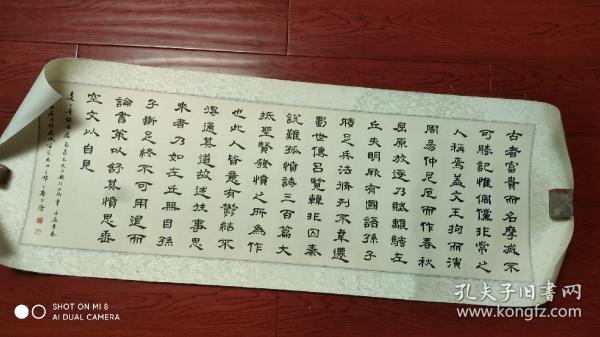 古者富貴而名摩滅不
可勝記惟倜儻非常之
人稱焉蓋文王拘而演
周易仲尼厄而作春秋
屈原放逐乃賦離騷左
丘失明厥有國語孫子
臏足兵法脩列不韋遷
蜀世傳呂覽韓非囚秦
說難孤憤詩三百篇大
抵聖賢發憤之所為作
也此人皆意有鬱結不
得通其道故述往事思
來者乃如左丘無目孫
子斷足終不可用退而
論書策以舒其憤思垂
空文以自見
SHOT ON MI 8
AI DUAL CAMERA
孔夫子旧書网
www.kongfz.com